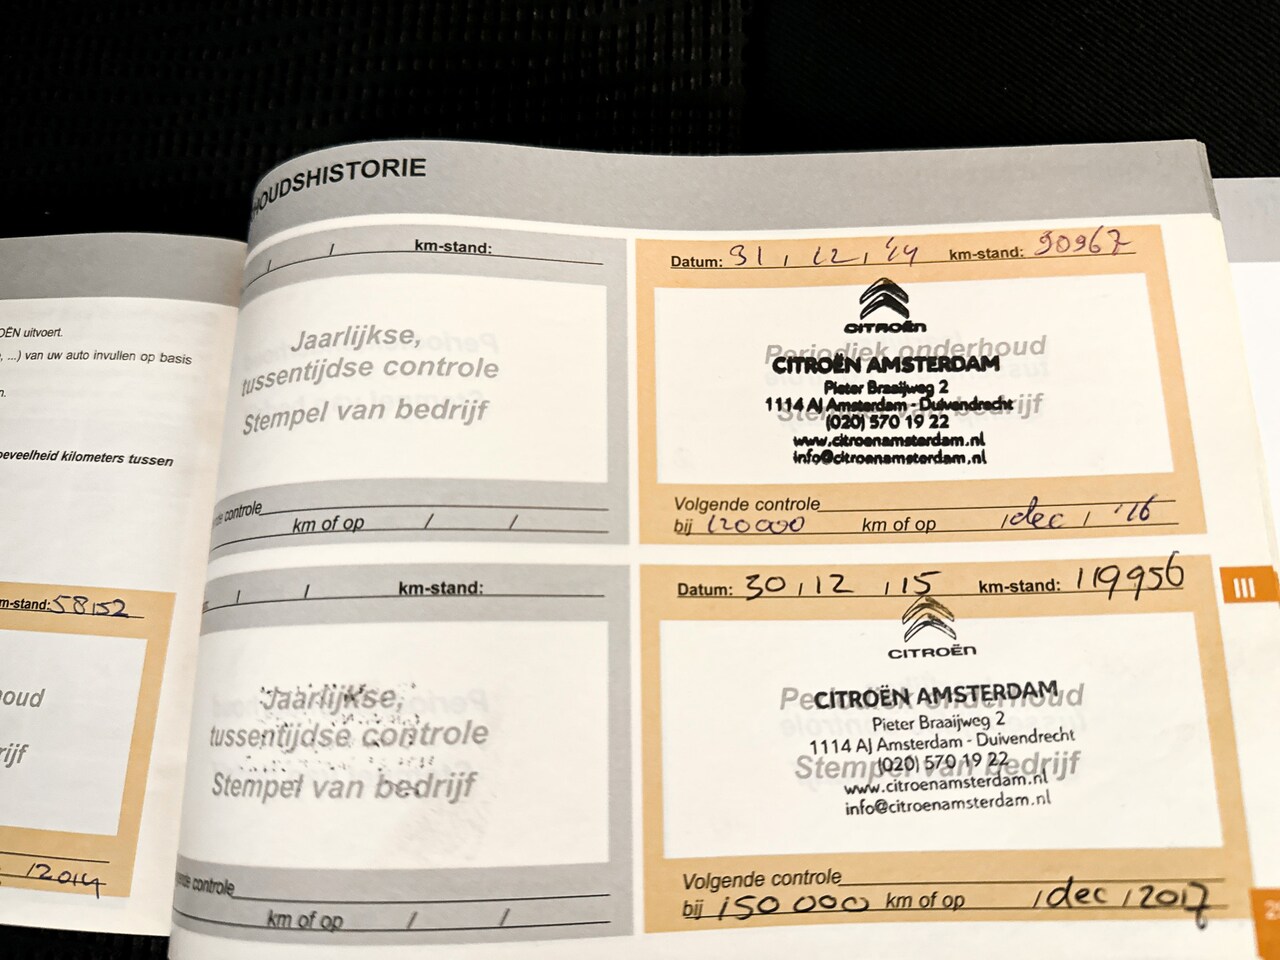 OËN uitvoert.
, ...) van uw auto invullen op basis
n.
oeveelheid kilometers tussen
m-stand: 58152
houd
rijf
/2014
HOUDSHISTORIE
/ / km-stand:
Jaarlijkse,
tussentijdse controle
Stempel van bedrijf
controle
km of op / /
Datum: 31 / 12 / '14 km-stand: 90967
CITROËN
Periodiek onderhoud
CITROËN AMSTERDAM
Pieter Braaijweg 2
1114 AJ Amsterdam - Duivendrecht
Stempel van bedrijf
(020) 570 19 22
www.citroenamsterdam.nl
info@citroenamsterdam.nl
Volgende controle
bij 120000 km of op / dec / '16
/ / km-stand:
Jaarlijkse,
tussentijdse controle
Stempel van bedrijf
controle
km of op / /
Datum: 30 / 12 / 15 km-stand: 119956
CITROËN
Periodiek onderhoud
CITROËN AMSTERDAM
Pieter Braaijweg 2
1114 AJ Amsterdam - Duivendrecht
Stempel van bedrijf
(020) 570 19 22
www.citroenamsterdam.nl
info@citroenamsterdam.nl
Volgende controle
bij 150 000 km of op / dec / 2017
III